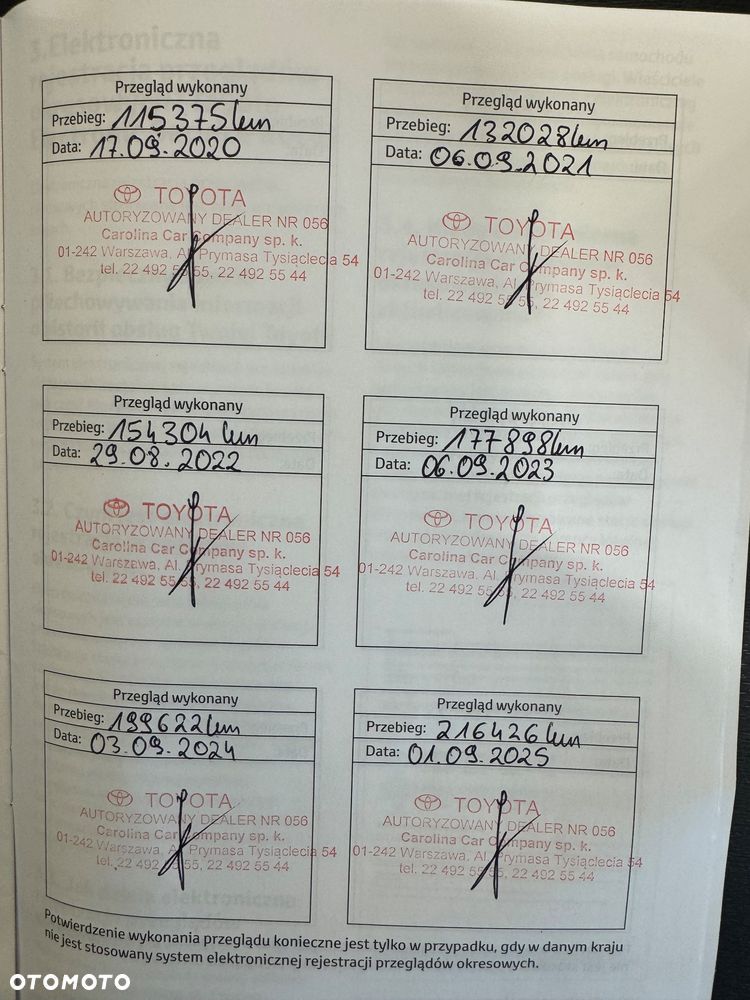 Przegląd wykonany
Przebieg: 115375km
Data: 17.09.2020
TOYOTA
AUTORYZOWANY DEALER NR 056
Carolina Car Company sp. k.
01-242 Warszawa, Al. Prymasa Tysiąclecia 54
tel. 22 492 55 55, 22 492 55 44
Przegląd wykonany
Przebieg: 132028km
Data: 06.09.2021
TOYOTA
AUTORYZOWANY DEALER NR 056
Carolina Car Company sp. k.
01-242 Warszawa, Al. Prymasa Tysiąclecia 54
tel. 22 492 55 55, 22 492 55 44
Przegląd wykonany
Przebieg: 154304 km
Data: 29.08.2022
TOYOTA
AUTORYZOWANY DEALER NR 056
Carolina Car Company sp. k.
01-242 Warszawa, Al. Prymasa Tysiąclecia 54
tel. 22 492 55 55, 22 492 55 44
Przegląd wykonany
Przebieg: 177898km
Data: 06.09.2023
TOYOTA
AUTORYZOWANY DEALER NR 056
Carolina Car Company sp. k.
01-242 Warszawa, Al. Prymasa Tysiąclecia 54
tel. 22 492 55 55, 22 492 55 44
Przegląd wykonany
Przebieg: 199622km
Data: 03.09.2024
TOYOTA
AUTORYZOWANY DEALER NR 056
Carolina Car Company sp. k.
01-242 Warszawa, Al. Prymasa Tysiąclecia 54
tel. 22 492 55 55, 22 492 55 44
Przegląd wykonany
Przebieg: 216426 km
Data: 01.09.2025
TOYOTA
AUTORYZOWANY DEALER NR 056
Carolina Car Company sp. k.
01-242 Warszawa, Al. Prymasa Tysiąclecia 54
tel. 22 492 55 55, 22 492 55 44
Potwierdzenie wykonania przeglądu konieczne jest tylko w przypadku, gdy w danym kraju
nie jest stosowany system elektronicznej rejestracji przeglądów okresowych.
OTOMOTO